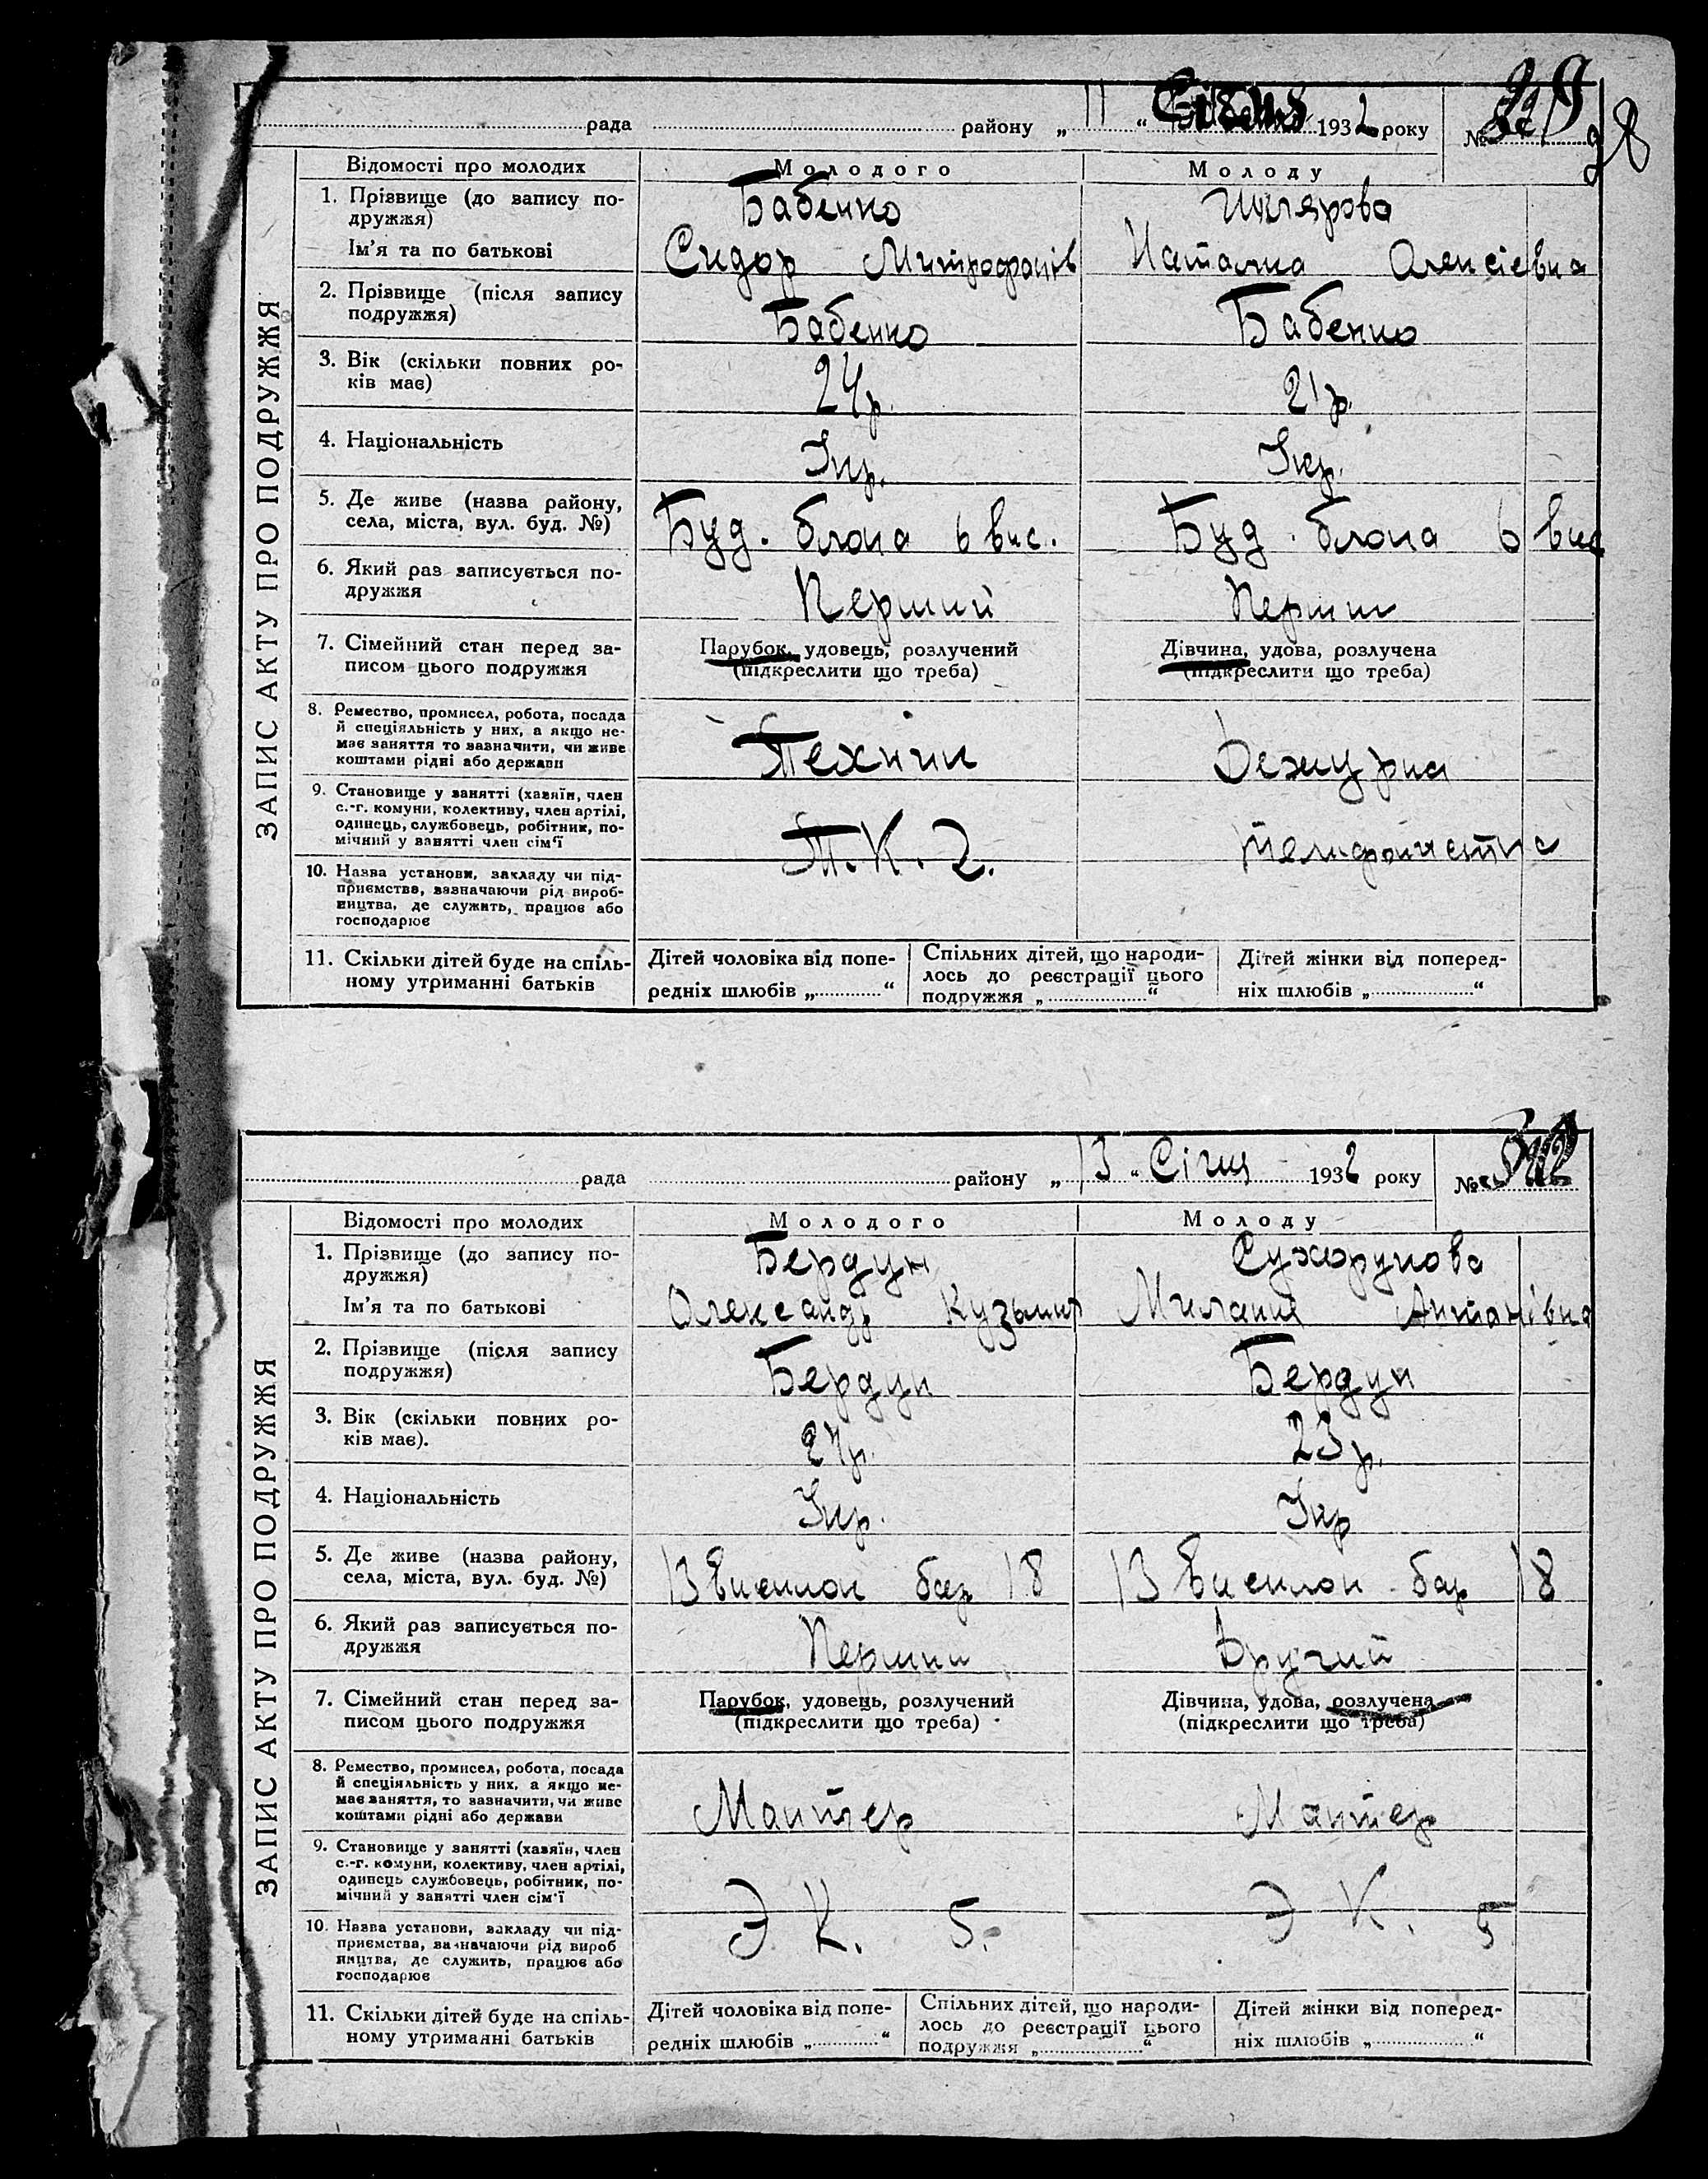 рада районe „ 11 “ Січня 1932 року №
98
ЗАПИС АКТУ ПРО ПОДРУЖЖЯ
Відомості про молодих Молодого Молоду
1. Прізвище (до запису по-
дружжя) Бабенко Шклярова
Ім'я та по батькові Сидор Митрофанів Наталка Олексієвна
2. Прізвище (після запису
подружжя) Бабенко Бабенко
3. Вік (скільки повних ро-
ків має) 24р. 21р.
4. Національність Укр. Укр.
5. Де живе (назва району,
села, міста, вул. буд. №) Буд. блока 6 вис. Буд. блока 6 вис
6. Який раз записується по-
дружжя Перший Перши
7. Сімейний стан перед за-
писом цього подружжя
Парубок, удовець, розлучений
(підкреслити що треба)
Дівчина, удова, розлучена
(підкреслити що треба)
8. Ремество, промисел, робота, посада
й спеціяльність у них, а якщо не-
має заняття то зазначити, чи живе
коштами рідні або держави
Технік Дежурна
9. Становище у занятті (хазяїн, член
с.-г. комуни, колективу, член артілі,
одинець, службовець, робітник, по-
мічний у занятті член сім'ї
Т.К.2. телефоністка
10. Назва установи, закладу чи під-
приємства, зазначаючи рід вироб-
ництва, де служить, працює або
господарює
11. Скільки дітей буде на спіль-
ному утриманні батьків
Дітей чоловіка від попе-
редніх шлюбів „ “
Спільних дітей, що народи-
лось до реєстрації цього
подружжя „ “
Дітей жінки від поперед-
ніх шлюбів „ “
рада району „ 13 “ Січня 1932 року №
ЗАПИС АКТУ ПРО ПОДРУЖЖЯ
Відомості про молодих Молодого Молоду
1. Прізвище (до запису по-
дружжя) Бердун Сухорукова
Ім'я та по батькові Олександр Кузьмич Миланія Антонівна
2. Прізвище (після запису
подружжя) Бердун Бердун
3. Вік (скільки повних ро-
ків має). 27р. 23р.
4. Національність Укр. Укр
5. Де живе (назва району,
села, міста, вул. буд. №) 13 виселок бар 18 13 виселок бар 18
6. Який раз записується по-
дружжя Перши Другий
7. Сімейний стан перед за-
писом цього подружжя
Парубок, удовець, розлучений
(підкреслити що треба)
Дівчина, удова, розлучена
(підкреслити що треба)
8. Ремество, промисел, робота, посада
й спеціяльність у них, а якщо не-
має заняття, то зазначити, чи живе
коштами рідні або держави
Монтер Монтер
9. Становище у занятті (хазяїн, член
с.-г. комуни, колективу, член артілі,
одинець службовець, робітник, по-
мічний у занятті член сім'ї
Э К. 5. Э К. 5
10. Назва установи, закладу чи під-
приємства, зазначаючи рід вироб
ництва, де служить, працює або
господарює
11. Скільки дітей буде на спіль-
ному утриманні батьків
Дітей чоловіка від попе-
редніх шлюбів „ “
Спільних дітей, що народи-
лось до реєстрації цього
подружжя „ “
Дітей жінки від поперед-
ніх шлюбів „ “